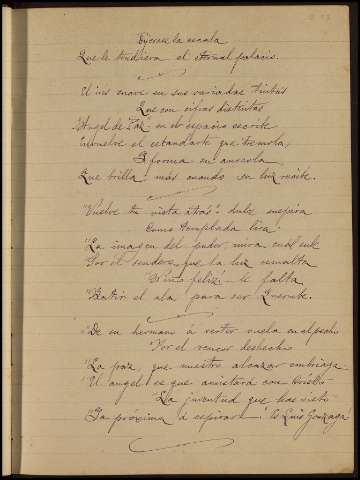 la escala
Que le tendiera el eternal palacio.
El iris suave en sus variadas tintas
Que con cifras distintas
Angel de Paz en el espacio escribe
el estandarte que tremola,
forma en aureola
Que brilla más cuando su luz recibe.
"Vuelve tu vista atrás": dulce suspira
Como templada lira:
"La imagen del poder, mira
Por el sendero que la luz esmalta
Niño feliz! - le falta
"Batir el ala para ser Querube.
"De su hermano á verter vuela en el pecho
"Por el rencor deshecho
"La paz, que nuestro alcanzar embriaga
"El angel es que con
"La juventud que has visto
"Ya próxima á espirar: Es Luis Gonzaga